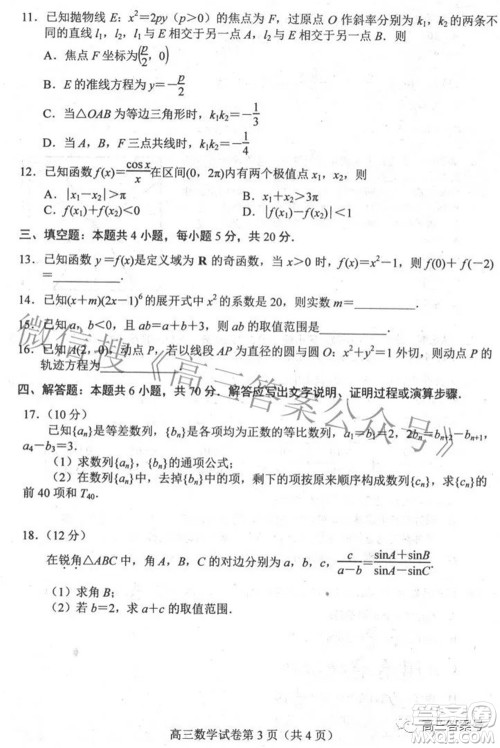 11. 已知抛物线 E: x²=2py (p>0) 的焦点为 F, 过原点 O 作斜率分别为 k₁, k₂ 的两条不
同的直线 l₁, l₂, l₁ 与 E 相交于另一点 A, l₂ 与 E 相交于另一点 B. 则
A. 焦点 F 坐标为(p/2, 0)
B. E 的准线方程为 y=-p/2
C. 当△OAB 为等边三角形时, k₁k₂=-1/3
D. 当 A, B, F 三点共线时, k₁k₂=-1/4
12. 已知函数 f(x)=cosx/x 在区间(0, 2π)内有两个极值点 x₁, x₂, 则
A. |x₁-x₂|>π
B. x₁+x₂>3π
C. f(x₁)+f(x₂)<0
D. |f(x₁)-f(x₂)|<1
三、填空题: 本题共 4 小题, 每小题 5 分, 共 20 分.
13. 已知函数 y=f(x)是定义域为 R 的奇函数, 当 x>0 时, f(x)=x²-1, 则 f(0)+f(-2)
=________.
14. 已知(x+m)(2x-1)⁶的展开式中 x²的系数是 20, 则实数 m=________.
15. 已知 a, b<0, 且 ab=a+b+3, 则 ab 的取值范围是________.
16. 已知 A(2, 0), 动点 P, 若以线段 AP 为直径的圆与圆 O: x²+y²=1 外切, 则动点 P 的
轨迹方程为________.
四、解答题: 本题共 6 小题, 共 70 分. 解答应写出文字说明、证明过程或演算步骤.
17. (10 分)
已知{aₙ}是等差数列, {bₙ}是各项均为正数的等比数列, a₁=b₁=2, 2bₙ=bₙ₊₂-bₙ₊₁,
a₄-b₃=3.
(1) 求数列{aₙ}, {bₙ}的通项公式;
(2) 在{aₙ}中, 去掉{bₙ}中的项, 剩下的项按原来顺序构成数列{cₙ}, 求{cₙ}的
前 40 项和 T₄₀.
18. (12 分)
在锐角△ABC 中, 角 A, B, C 的对边分别为 a, b, c, c/(a-b)=(sinA+sinB)/(sinA-sinC).
(1) 求角 B;
(2) 若 b=2, 求 a+c 的取值范围.
高三数学试卷第 3 页 (共 4 页)
微信搜《高三答案公众号》
高三答案号